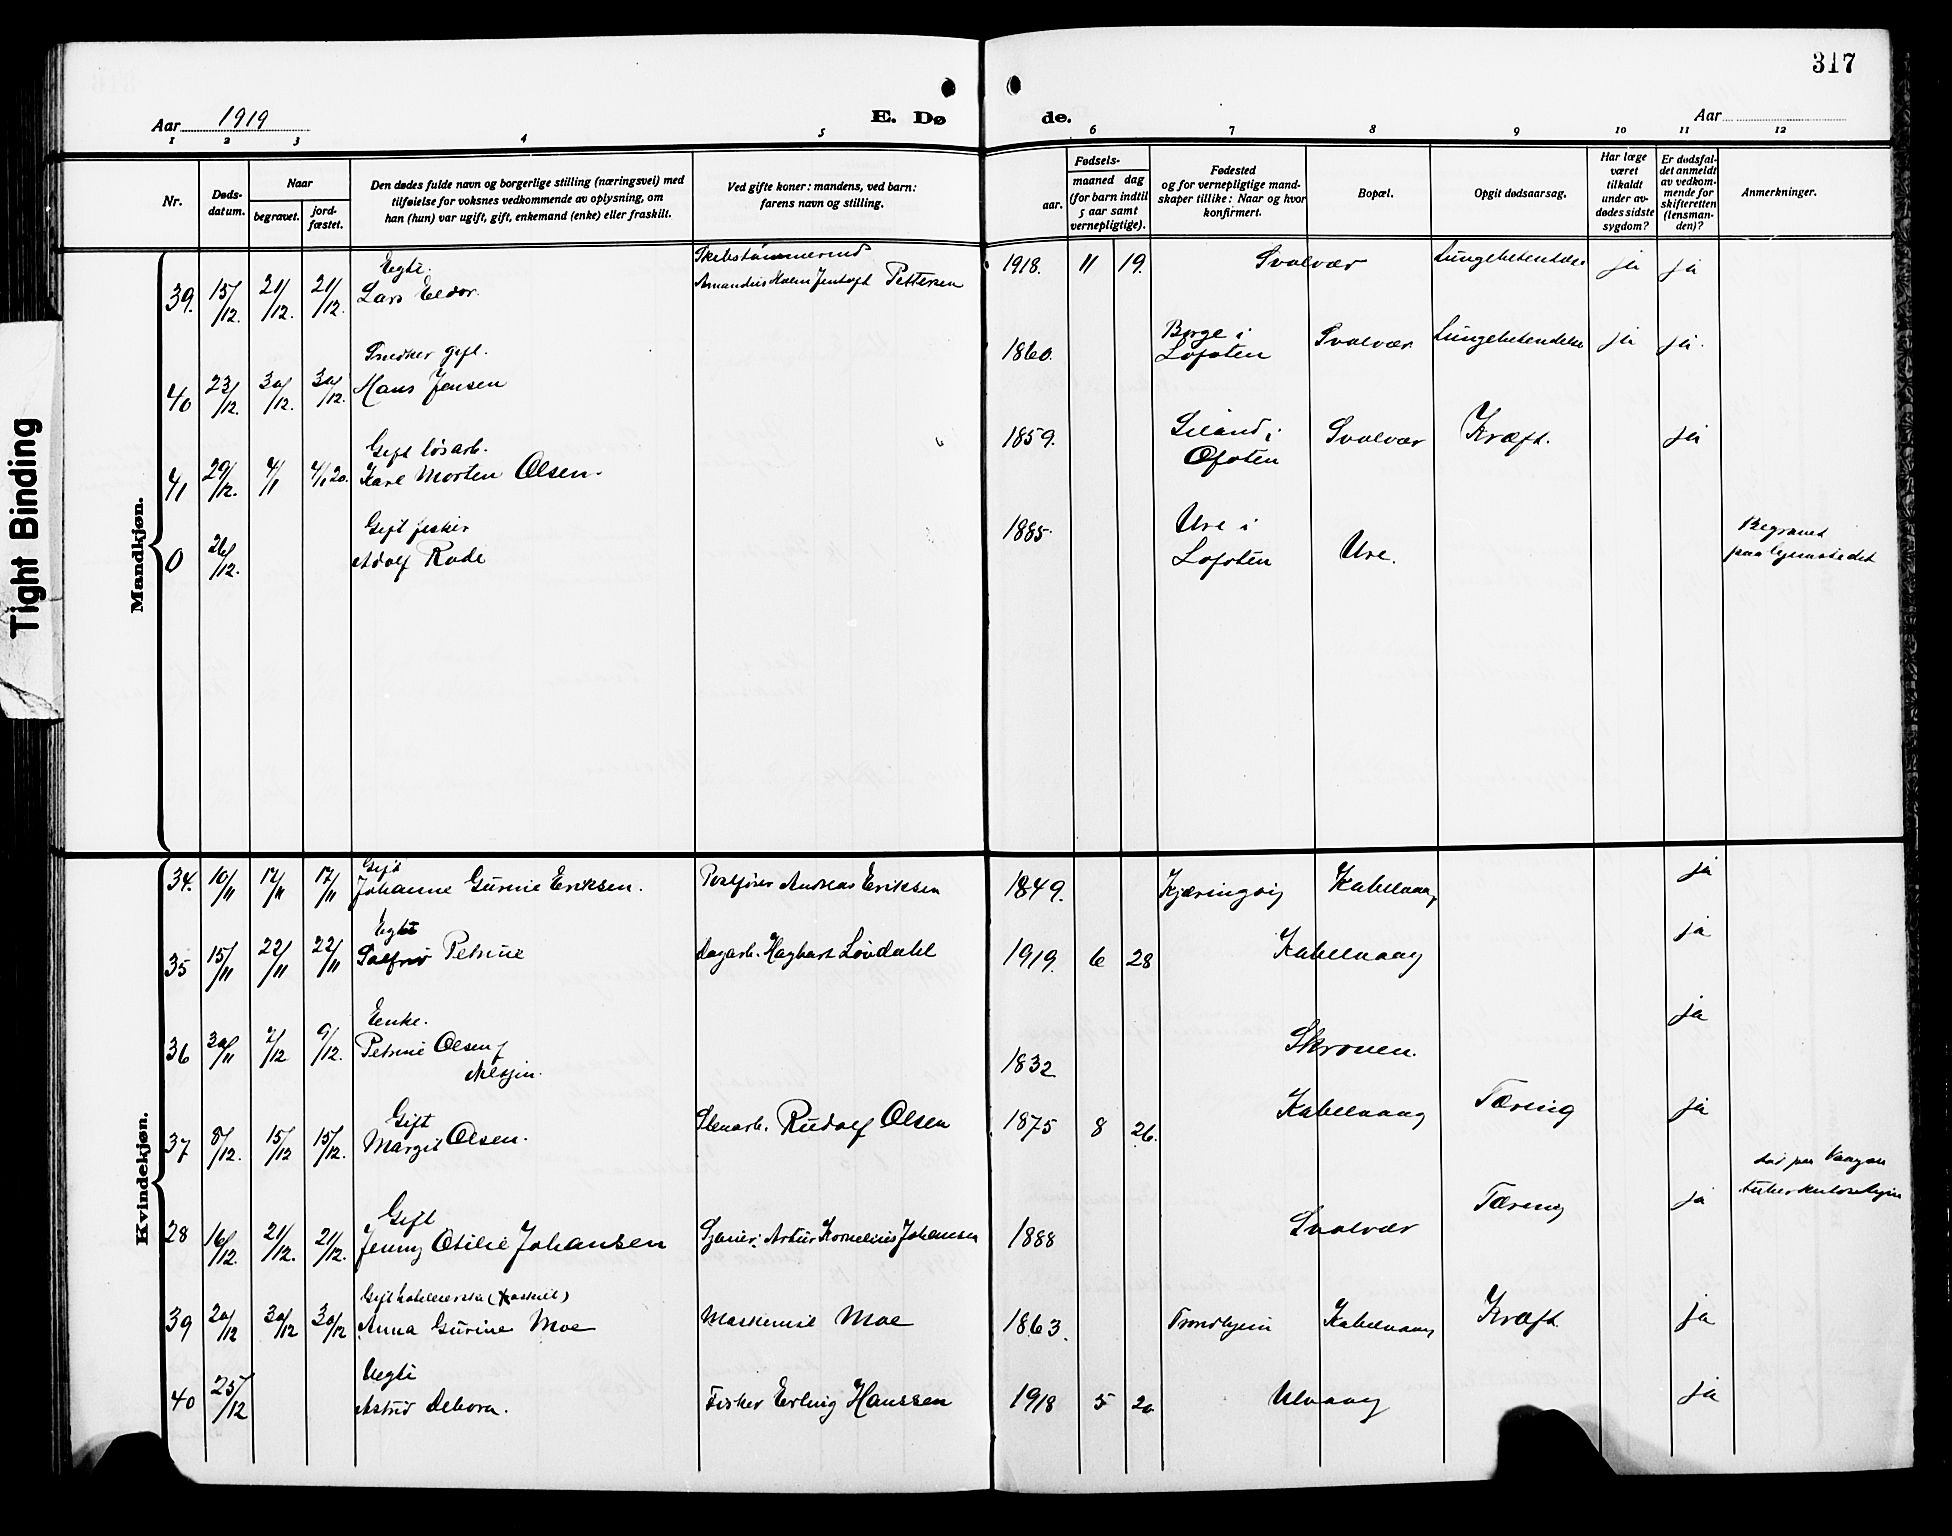 317
Aar 1919
E. Dø
de.
Aar
1 2 3 4 5 6 7 8 9 10 11 12
Nr.
Døds-
datum.
Naar
begravet.
jord-
fæstet.
Den dødes fulde navn og borgerlige stilling (næringsvei) med
tilføielse for voksnes vedkommende av oplysning, om
han (hun) var ugift, gift, enkemand (enke) eller fraskilt.
Ved gifte koner: mandens, ved barn:
farens navn og stilling.
Fødsels-
aar.
maaned dag
(for barn indtil
5 aar samt
vernepligtige).
Fødested
og for vernepligtige mand-
skaper tillike: Naar og hvor
konfirmert.
Bopæl.
Opgit dødsaarsag.
Har læge
været
tilkaldt
under av-
dødes sidste
sygdom?
Er dødsfal-
det anmeldt
av vedkom-
mende for
skifteretten
(lensman-
den)?
Anmerkninger.
Tight Binding
Mandkjøn.
Egte.
39. 15/12. 21/12. 21/12. Lars Eldor. Pettersen 1918. 11 19. Svolvær ja ja
Snedker gift.
40 23/12. 30/12. 30/12. Hans Jensen 1860. Borge i
Lofoten Svolvær Lungebetendelse ja ja.
Gift løsarb.
41 29/12. 4/1 4/1 20. Karl Morten Olsen. 1859. i
Ofoten Svolvær Kræft. ja
Gift fisker
0 26/12. Adolf Rode 1885. Ure i
Lofoten Ure. Begravet
paa hjemstedet
Kvindekjøn.
Gift
34. 10/11 17/11 17/11 Johanne Gurine Eriksen. Andreas Eriksen 1849. Kjæringvig Kabelvaag ja
Egte
35 15/11 22/11 22/11 Solfrid Petrine Dagarb. Hagbart Løvdahl 1919. 6 28 Kabelvaag ja
Enke.
36 30/11 7/12 9/12. Petrine Olsen 1832 Skroven. ja
Gift
37 8/12. 15/12 15/12. Margit Olsen. Stenarb. Rudolf Olsen 1875 8 26. Kabelvaag Tæring ja
Gift
28 16/12. 21/12. 21/12. Jenny Otilie Johansen Artur Kornelius Johansen 1888 Svolvær Tæring ja død paa Vaagan
tuberkulosehjem
39 20/12 30/12 30/12 Anna Gurine Moe Maskinist Moe 1863. Trondhjem Kabelvaag Kræft. ja
Uegte
40 25/12 Astrid Debora. Fisker Erling Hanssen 1918 5 20 Ulvaag ja